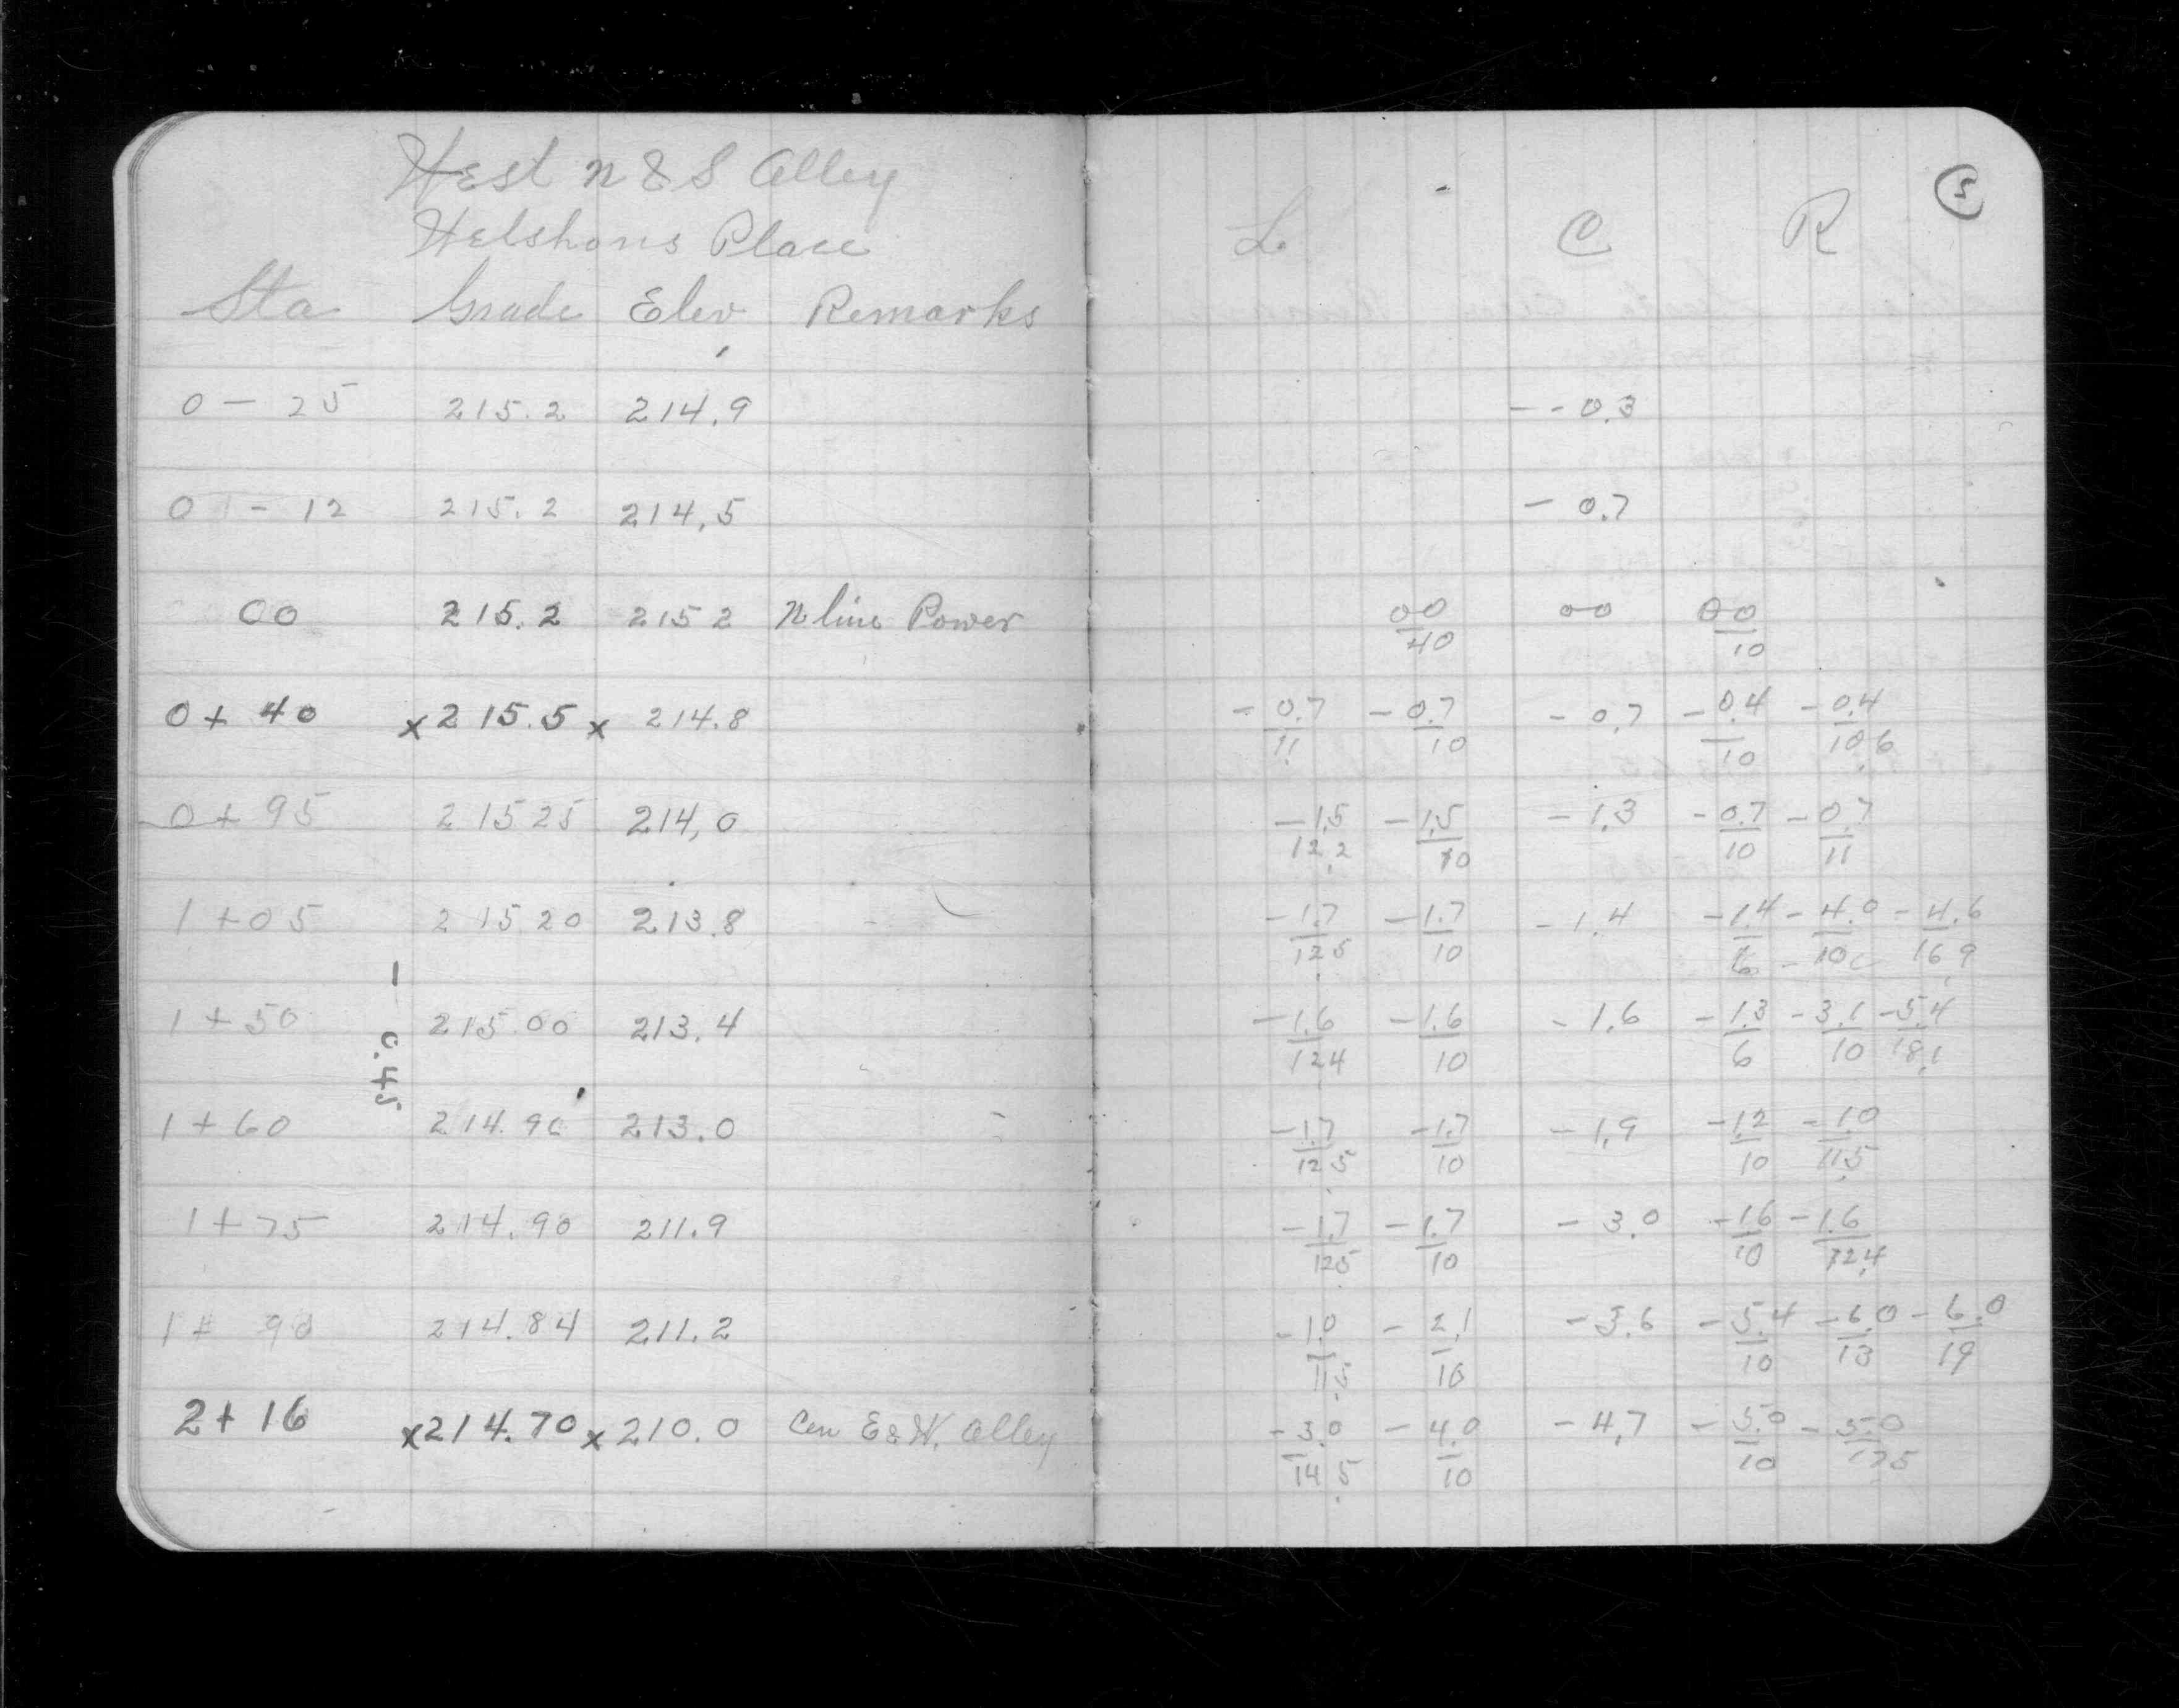 West N & S Alley
Welshons Place
Sta Grade Elev Remarks
0 - 25 215.2 214.9
0 - 12 215.2 214.5
00 215.2 215 2 N line Power
0 + 40 x 215.5 x 214.8
0 + 95 215 25 214.0
1 + 05 215 20 213.8
1 + 50 215.00 213.4
- 0.45
1 + 60 214.90 213.0
1 + 75 214.90 211.9
1 + 90 214.84 211.2
2 + 16 x 214.70 x 210.0 Cen E & W. Alley
5
L C R
- - 0.3
- 0.7
00/40 00 00/10
- 0.7/11 - 0.7/10 - 0.7 - 0.4/10 - 0.4/10.6
- 1.5/12.2 - 1.5/10 - 1.3 - 0.7/10 - 0.7/11
- 1.7/12.5 - 1.7/10 - 1.4 - 1.4/6 - 4.0/10 - 4.6/16.9
- 1.6/12.4 - 1.6/10 - 1.6 - 1.3/6 - 3.1/10 - 5.4/18.1
- 1.7/12.5 - 1.7/10 - 1.9 - 1.2/10 - 1.0/11.5
- 1.7/12.5 - 1.7/10 - 3.0 - 1.6/10 - 1.6/12.4
- 1.0/11.5 - 2.1/10 - 3.6 - 5.4/10 - 6.0/13 - 6.0/19
- 3.0/14.5 - 4.0/10 - 4.7 - 5.0/10 - 5.0/17.5